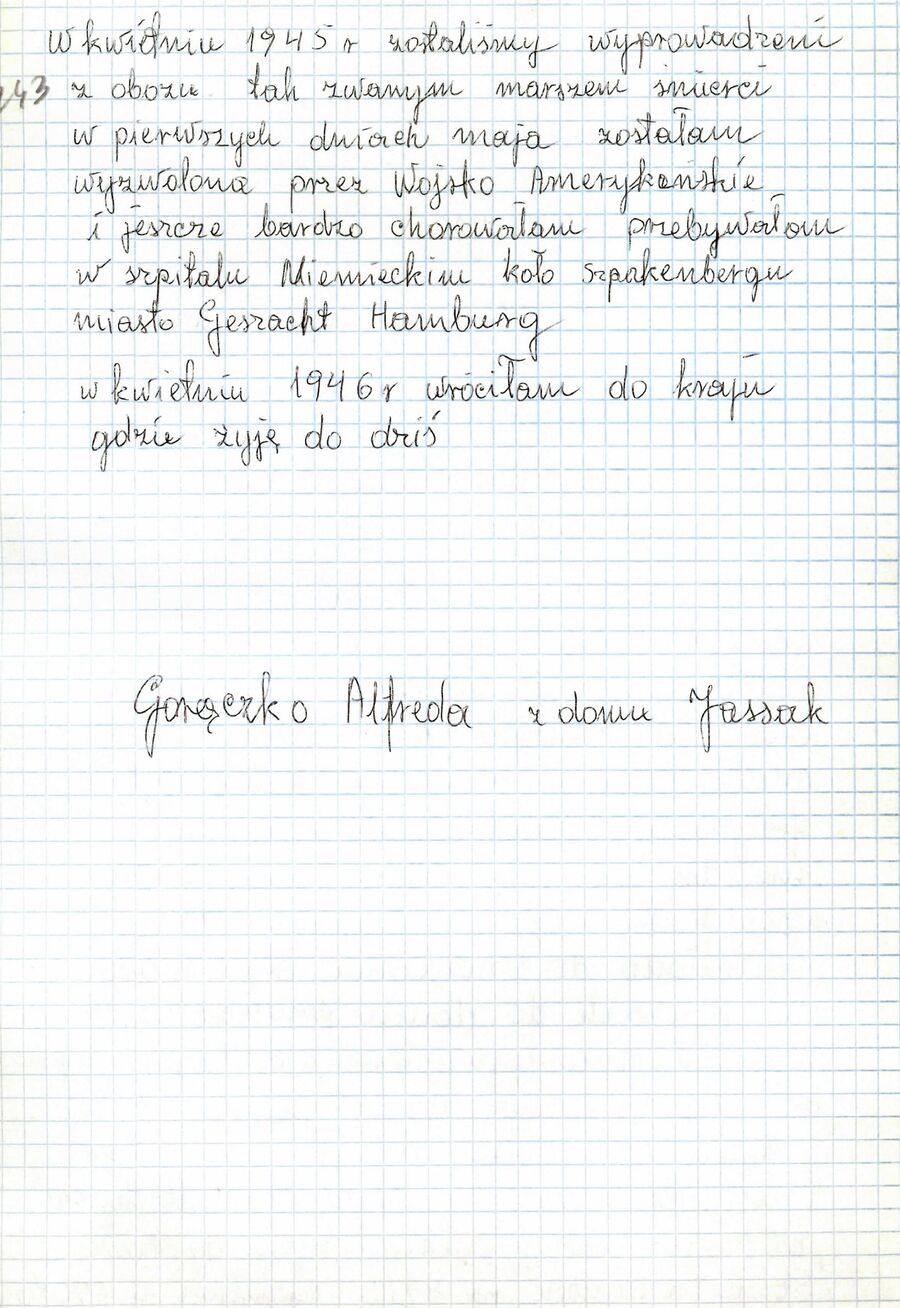 W kwietniu 1945 r zostaliśmy wyprowadzeni
243 z obozu tak zwanym marszem śmierci
w pierwszych dniach maja zostałam
wyzwolona przez Wojsko Amerykańskie
i jeszcze bardzo chorowałam przebywałam
w szpitalu Niemieckim koło Szpakenbergu
miasto Geszacht Hamburg
w kwietniu 1946 r wróciłam do kraju
gdzie żyję do dziś
Gorączko Alfreda z domu Jassak